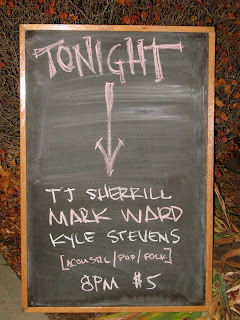 TONIGHT
TJ SHERRILL
MARK WARD
KYLE STEVENS
[ACOUSTIC/POP/FOLK]
8PM $5